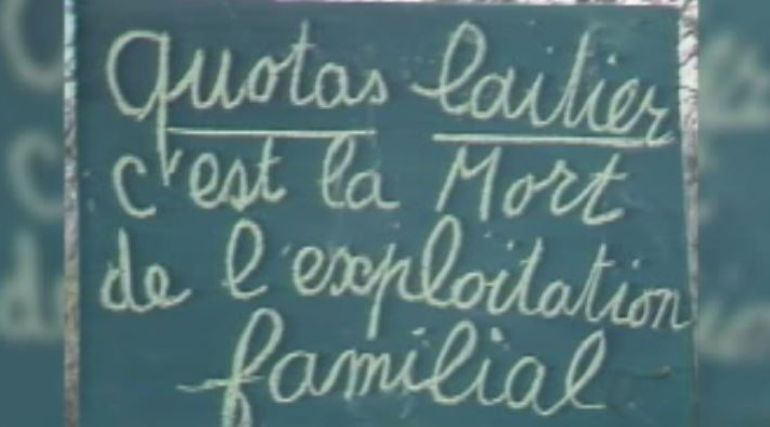 Quotas laitier
c'est la Mort
de l'exploitation
familial